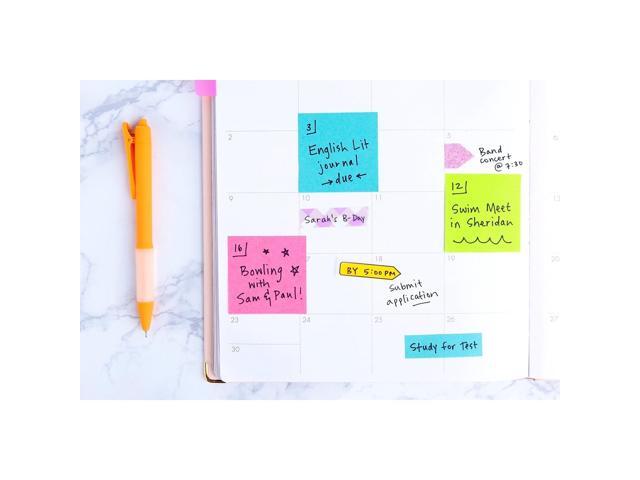 2
3
English Lit
journal
→ due ←
5
Band
concert
@ 7:30
6
9
10
Sarah's B-Day
11
12
Swim Meet
in Sheridan
13
16
Bowling
with
Sam & Paul!
17
BY 5:00 PM
18
Submit
application
19
20
23
24
25
Study for Test
26
27
30